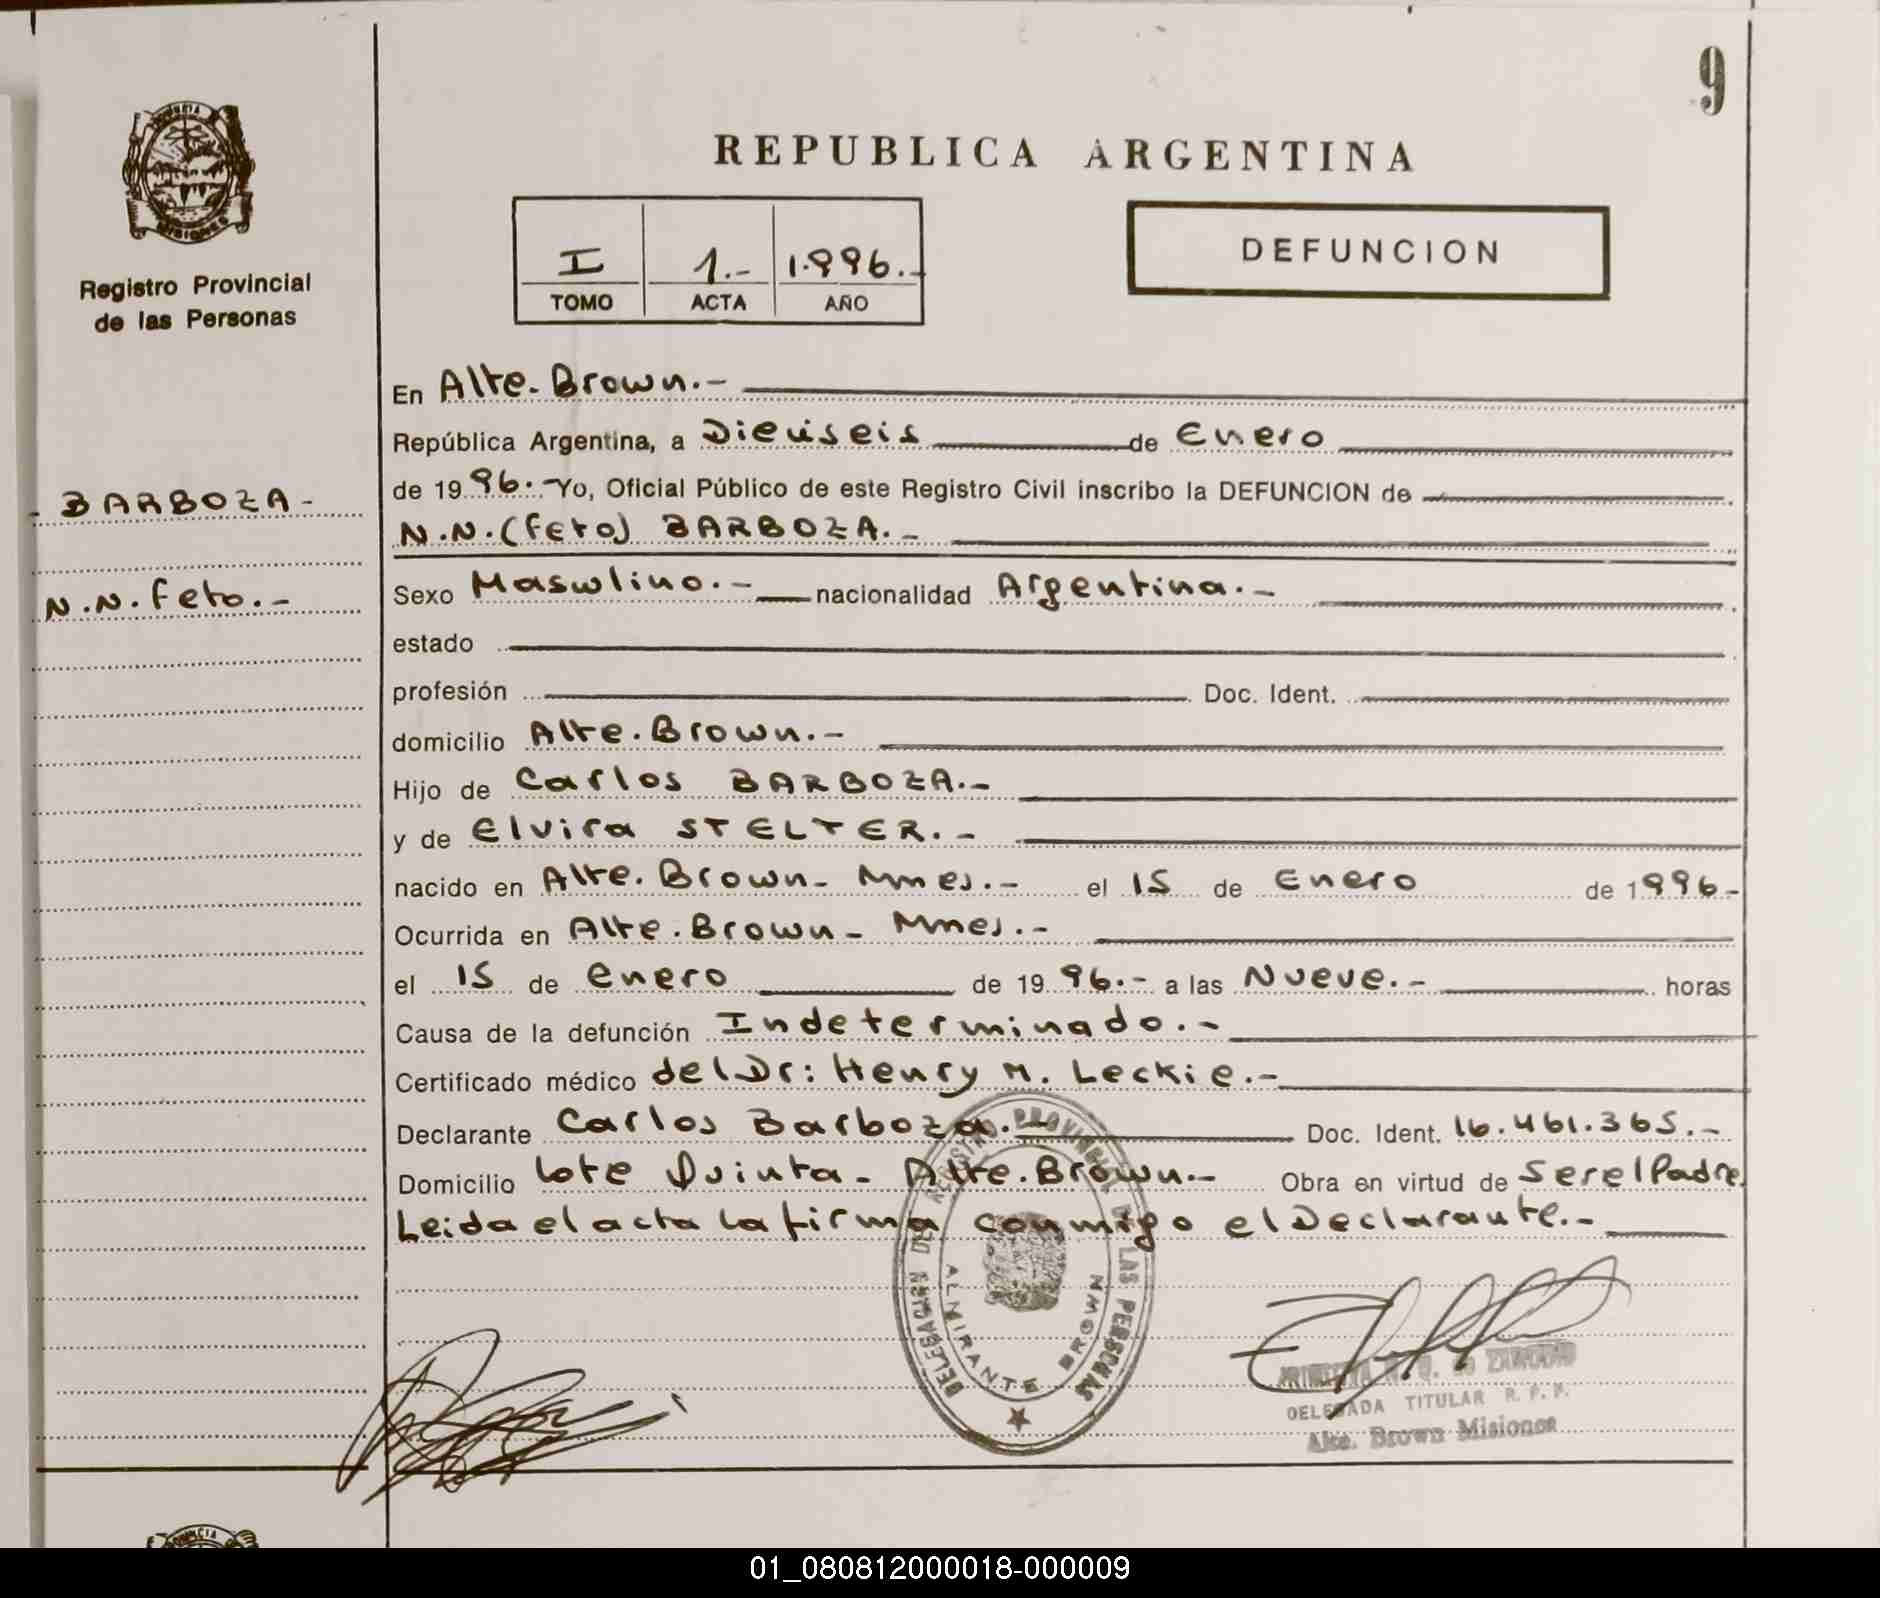 9
REPUBLICA ARGENTINA
PROVINCIA
MISIONES
Registro Provincial
de las Personas
I 1.- 1.996.-
TOMO ACTA AÑO
DEFUNCION
BARBOZA -
N.N. feto.-
En Alte. Brown.-
República Argentina, a Dieciseis de Enero
de 1996.- Yo, Oficial Público de este Registro Civil inscribo la DEFUNCION de
N.N. (feto) BARBOZA.-
Sexo Masculino.- nacionalidad Argentina.-
estado
profesión Doc. Ident.
domicilio Alte. Brown.-
Hijo de Carlos BARBOZA.-
y de Elvira STELTER.-
nacido en Alte. Brown - Mnes.- el 15 de Enero de 1996.-
Ocurrida en Alte. Brown - Mnes.-
el 15 de enero de 1996.- a las Nueve.- horas
Causa de la defunción Indeterminado.-
Certificado médico del Dr: Henry M. Leckie.-
Declarante Carlos Barboza.- Doc. Ident. 16.461.365.-
Domicilio lote Quinta - Alte. Brown.- Obra en virtud de Ser el Padre.
Leida el acta la firma conmigo el Declarante.-
DELEGACION DEL REGISTRO PROVINCIAL DE LAS PERSONAS
ALMIRANTE BROWN
DELEGADA TITULAR R. P. P.
Alte. Brown Misiones
01_080812000018-000009